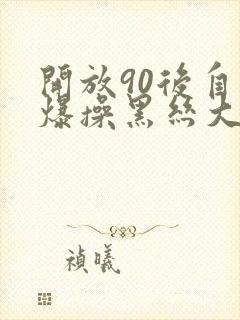 開放90後自
爆操黑丝大
禎曦